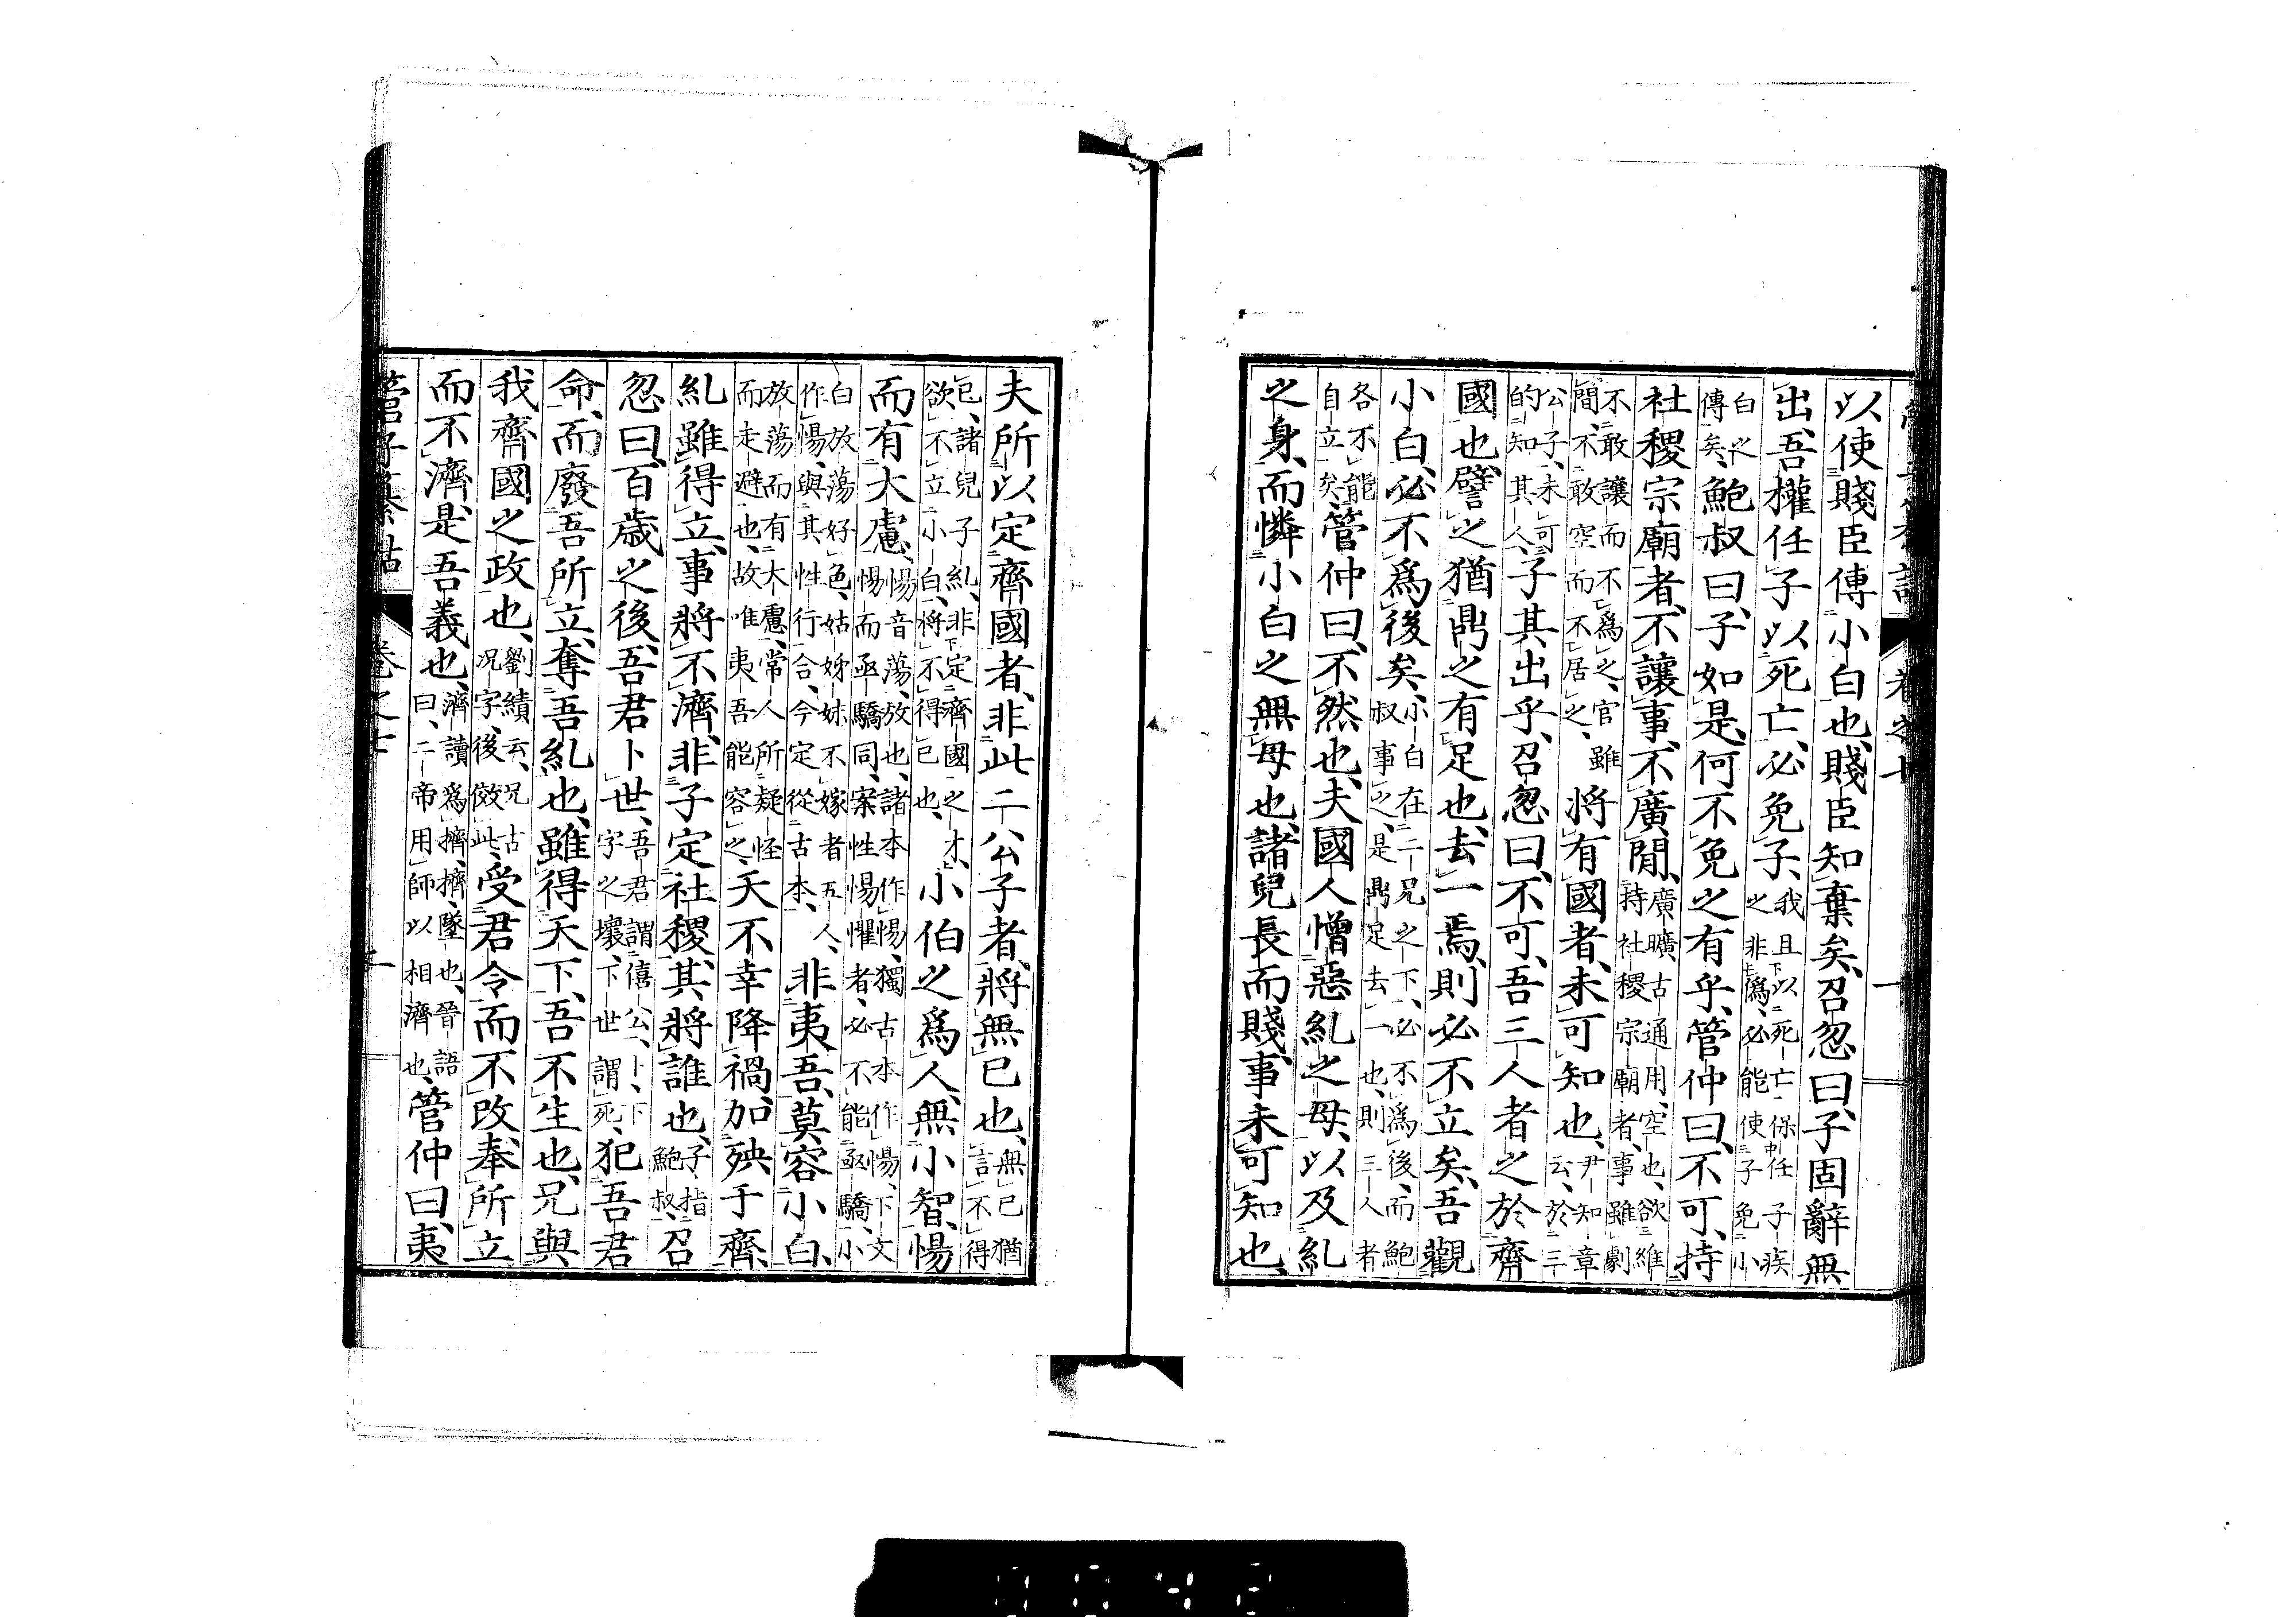 以使賤臣傅小白也、賤臣知棄矣、召忽曰、子固辭無
出、吾權任子以死亡、必免子、我且以死亡保任子疾
之非僞、必能使子免小
白之
傅矣、鮑叔曰、子如是、何不免之有乎、管仲曰、不可、持
社稷宗廟者、不讓事、不廣閒、廣曠古通用、空也、欲維
持社稷宗廟者、事雖劇
不敢讓而不爲之、官雖
閒、不敢空而不居之、將有國者、未可知也、尹知章
云、於三
公子、未可
的知其人、子其出乎、召忽曰、不可、吾三人者之於齊
國也、譬之猶鼎之有足也、去一焉、則必不立矣、吾觀
小白、必不爲後矣、小白在二兄之下、必不爲後、而鮑
叔事之、是鼎足去一也、則三人者
各不能
自立矣、管仲曰、不然也、夫國人憎惡糺之母、以及糺
之身、而憐小白之無母也、諸兒長而賤、事未可知也、
夫所以定齊國者、非此二公子者、將無已也、無已猶
言不得
已、諸兒子糺、非定齊國之才、
欲不立小白、將不得已也、小伯之爲人、無小智、愓
而有大慮、愓音蕩、放也、諸本作惕、獨古本作愓、下文
愓而亟驕同、案性惕懼者、必不能亟驕、小
白放蕩好色、姑姊妹不嫁者五人、
作愓、與其性行合、今定從古本、非夷吾、莫容小白、
放蕩而有大慮、常人所疑怪
而走避也、故唯夷吾能容之、天不幸降禍加殃于齊、
糺雖得立、事將不濟、非子定社稷、其將誰也、子指
鮑叔、召
忽曰、百歲之後、吾君卜世、吾君謂僖公、卜、下
字之壞、下世謂死、犯吾君
命、而廢吾所立、奪吾糺也、雖得天下、吾不生也、兄與
我齊國之政也、劉績云、兄古
況字、後倣此、受君令而不改、奉所立
而不濟、是吾義也、濟讀爲擠、擠、墜也、晉語
曰、二帝用師以相濟也、管仲曰、夷
管子纂詁 卷之七 一